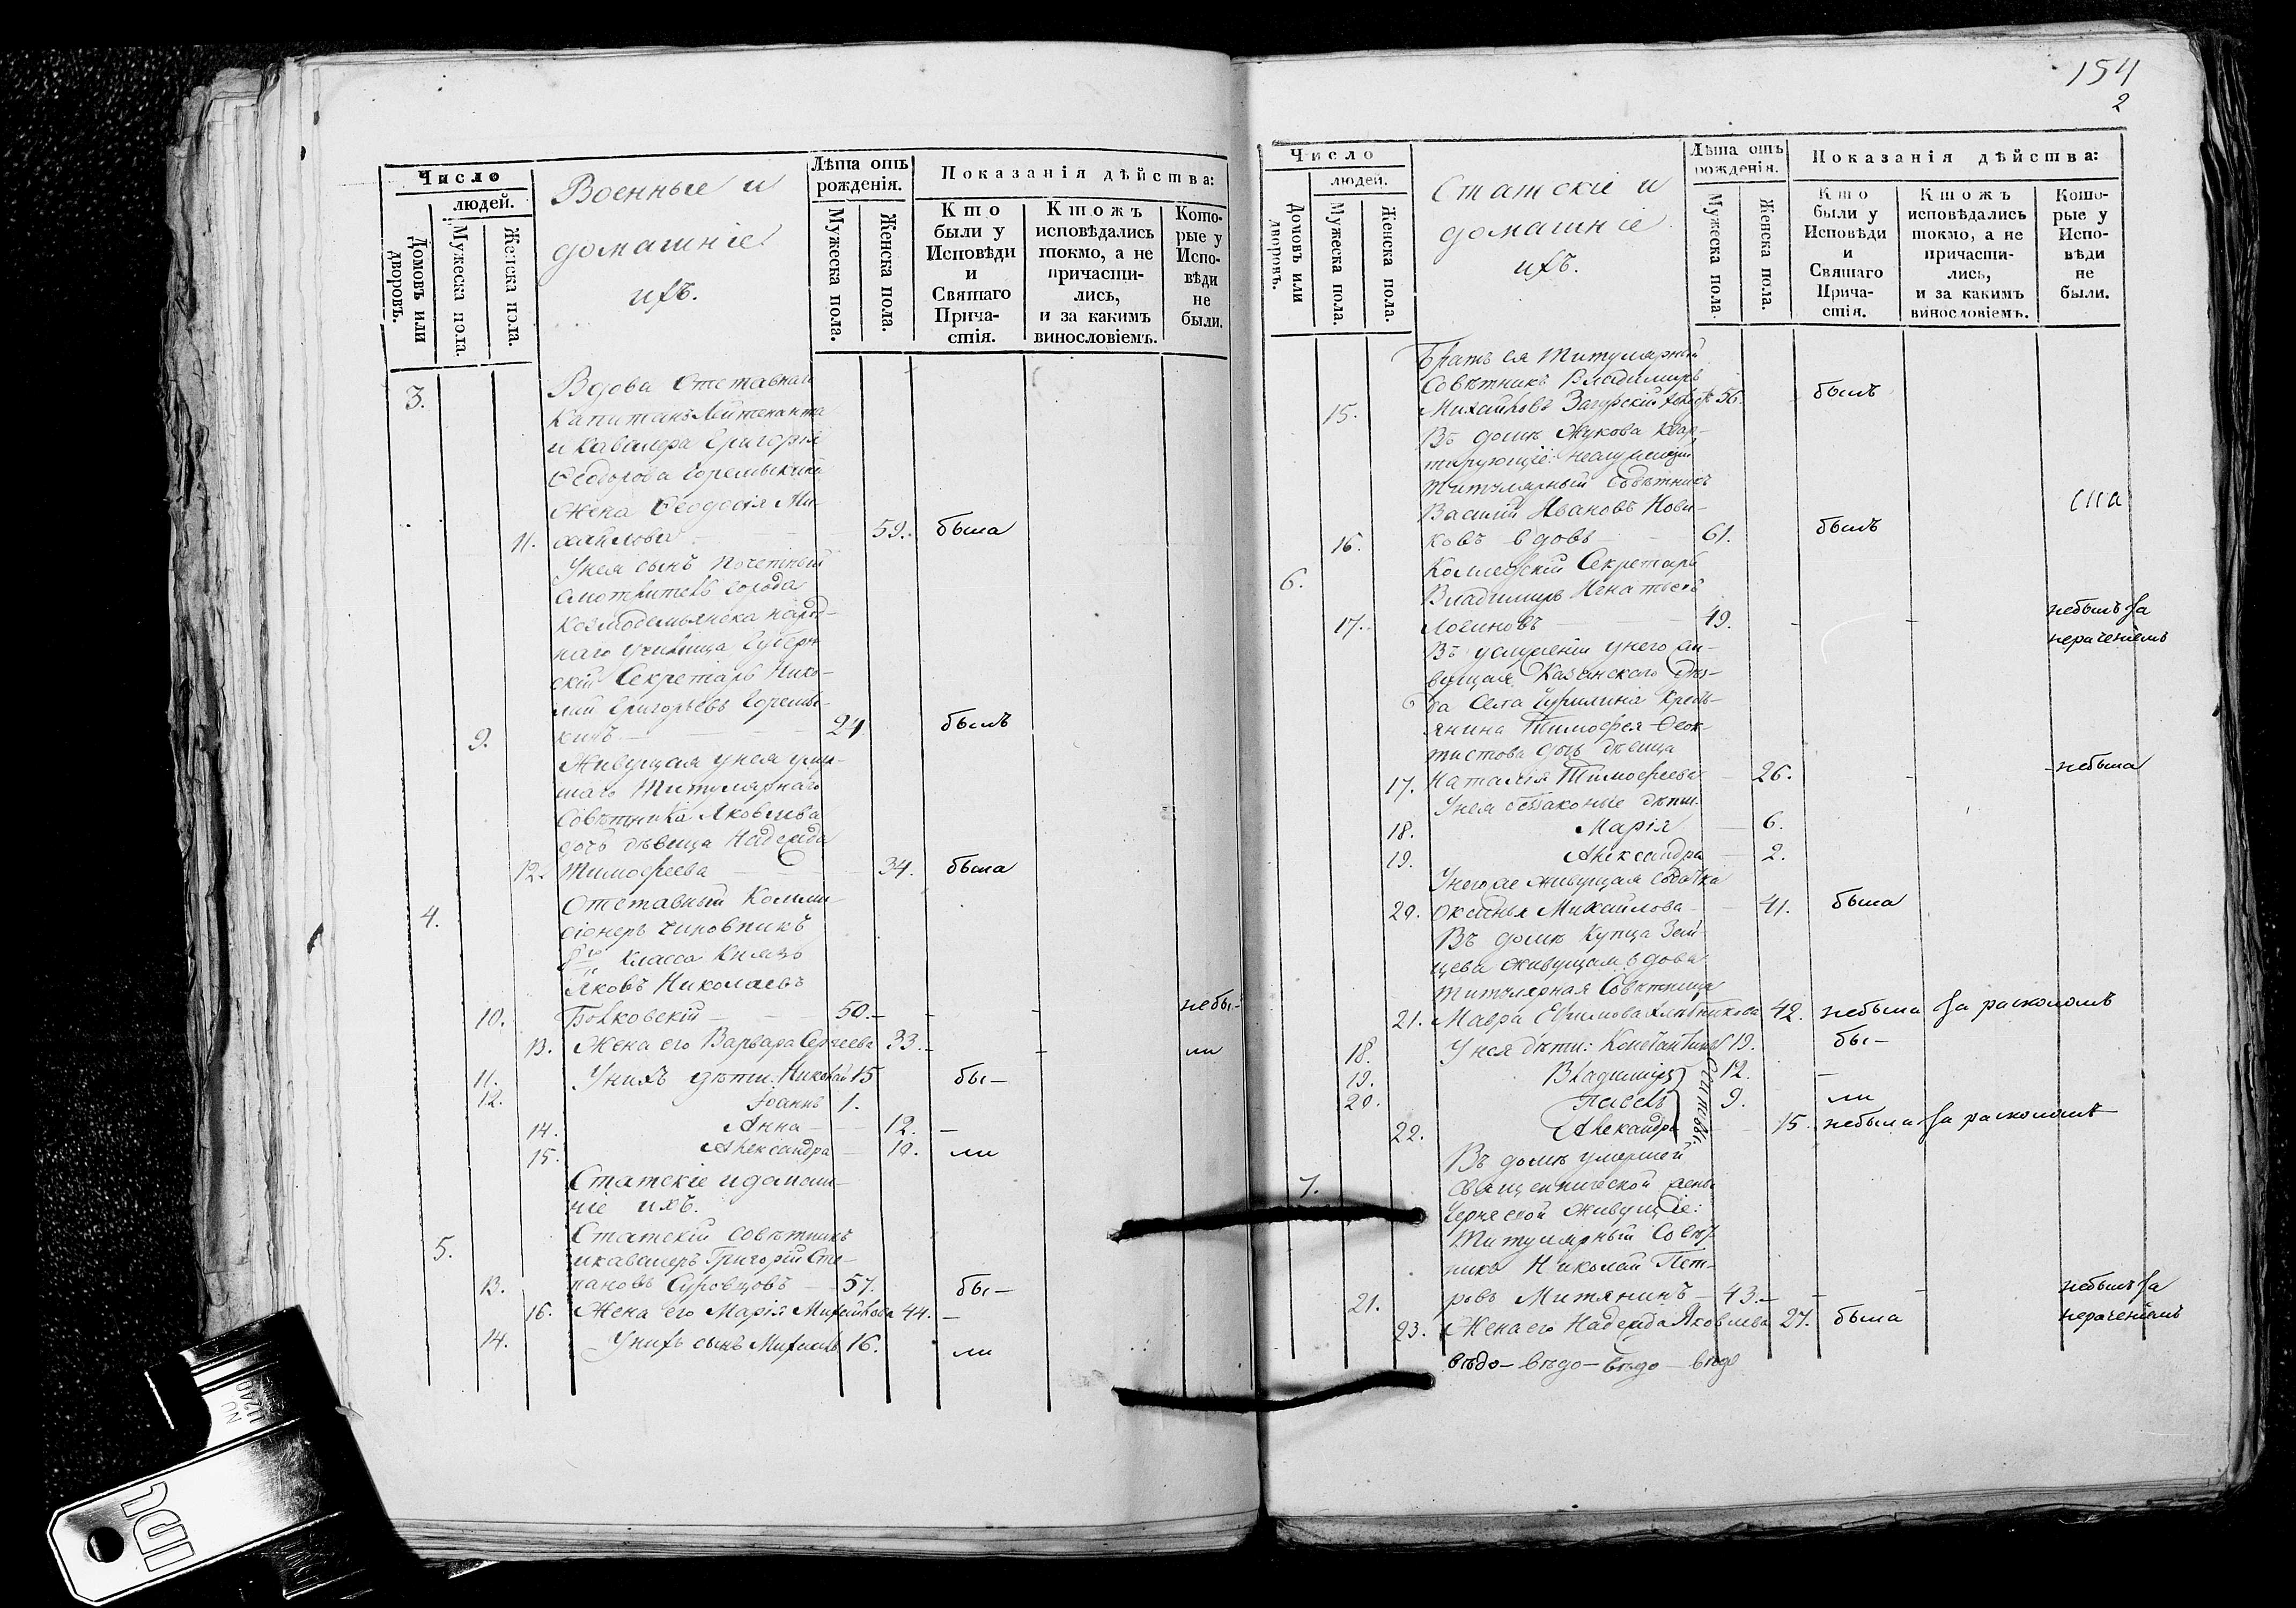 Число
людей.
Домовъ или дворовъ.
Мужеска пола.
Женска пола.
Военные и
домашніе
ихъ.
Лѣта отъ
рожденія.
Мужеска пола.
Женска пола.
Показанія дѣйства:
Кто
были у
Исповѣди
и
Святаго
Прича-
стія.
Ктожъ
исповѣдались
токмо, а не
причасти-
лись,
и за какимъ
винословіемъ.
Кото-
рые у
Испо-
вѣди
не
были.
3. Вдова Отставнаго
Капитанъ Лейтенанта
и Кавалера Григорія
Ѳеодорова Горемыкина
Жена Ѳеодосія Ми-
11. хайлова 59. была
У нея сынъ почетный
смотритель города
Козмодемьянска
наго училища Губерн
скій Секретарь Нико-
лай Григорьевъ Горемы-
9. кинъ 24. былъ
Живущая у нея умер-
шаго Титулярнаго
Совѣтника Яковлева
дочь дѣвица Надежда
12. Тимофеева 34. была
4. Отставный Комми-
сіонеръ чиновникъ
8го класса Князь
Яковъ Николаевъ
10. Болховскій 50. – – – небы-
13. Жена его Варвара Сергеева 33. – – ли
11. У нихъ дѣти: Николай 15 бы-
12. Іоаннъ 1.
14. Анна 12. –
15. Александра 10. ли
Статскіе и домаш-
ніе ихъ.
5. Статскій совѣтникъ
и кавалеръ Григорій Сте-
13. пановъ Суровцовъ 57. бы-
16. Жена его Марія Михайлова 44. –
14. У нихъ сынъ Михаилъ 16. ли
154
2
Число
людей.
Домовъ или дворовъ.
Мужеска пола.
Женска пола.
Статскіе и
домашніе
ихъ.
Лѣта отъ
рожденія.
Мужеска пола.
Женска пола.
Показанія дѣйства:
Кто
были у
Исповѣди
и
Святаго
Прича-
стія.
Ктожъ
исповѣдались
токмо, а не
причасти-
лись,
и за какимъ
винословіемъ.
Кото-
рые у
Испо-
вѣди
не
были.
Братъ ея Титулярный
Совѣтникъ Владимиръ
15. Михайловъ Загорскій 56. былъ
Въ домѣ Жукова квар-
тирующіе: неслужащій
Титулярный Совѣтникъ
Василій Ивановъ Нови-
16. ковъ вдовъ 61. былъ
6. Коллежскій Секретарь
Владимиръ Игнатьевъ
17. Логиновъ 49. – – небылъ за
нераченіемъ
Въ услуженіи у него жи-
вущая Казанского уѣз-
да Села Чурилина Кресть-
янина Тимофея Ѳеок-
тистова дочь дѣвица
17. Наталія Тимофеева 26. – – небыла
У нея беззаконые дѣти:
18. Марія 6.
19. Александра 2.
У него же живущая солдатка
20. Оксинья Михайлова 41. была
Въ домѣ Купца Зай-
цева живущая вдова
Титулярная Совѣтница
21. Мавра Ефимова 42. небыла за расколомъ
18. У нея дѣти: Константинъ 19. бы-
19. Владимиръ 12. –
20. Павелъ 9. ли
22. Александра 15. небыла за расколомъ
7. Въ домѣ умершей
священнической жены
живущіе:
Титулярный Совѣт-
никъ Николай Пет-
21. ровъ Митянинъ 43. – – небылъ за
23. Жена его Надежда Яковлева 27. была нераченіемъ
вѣдо- вѣдо- вѣдо- вѣдо